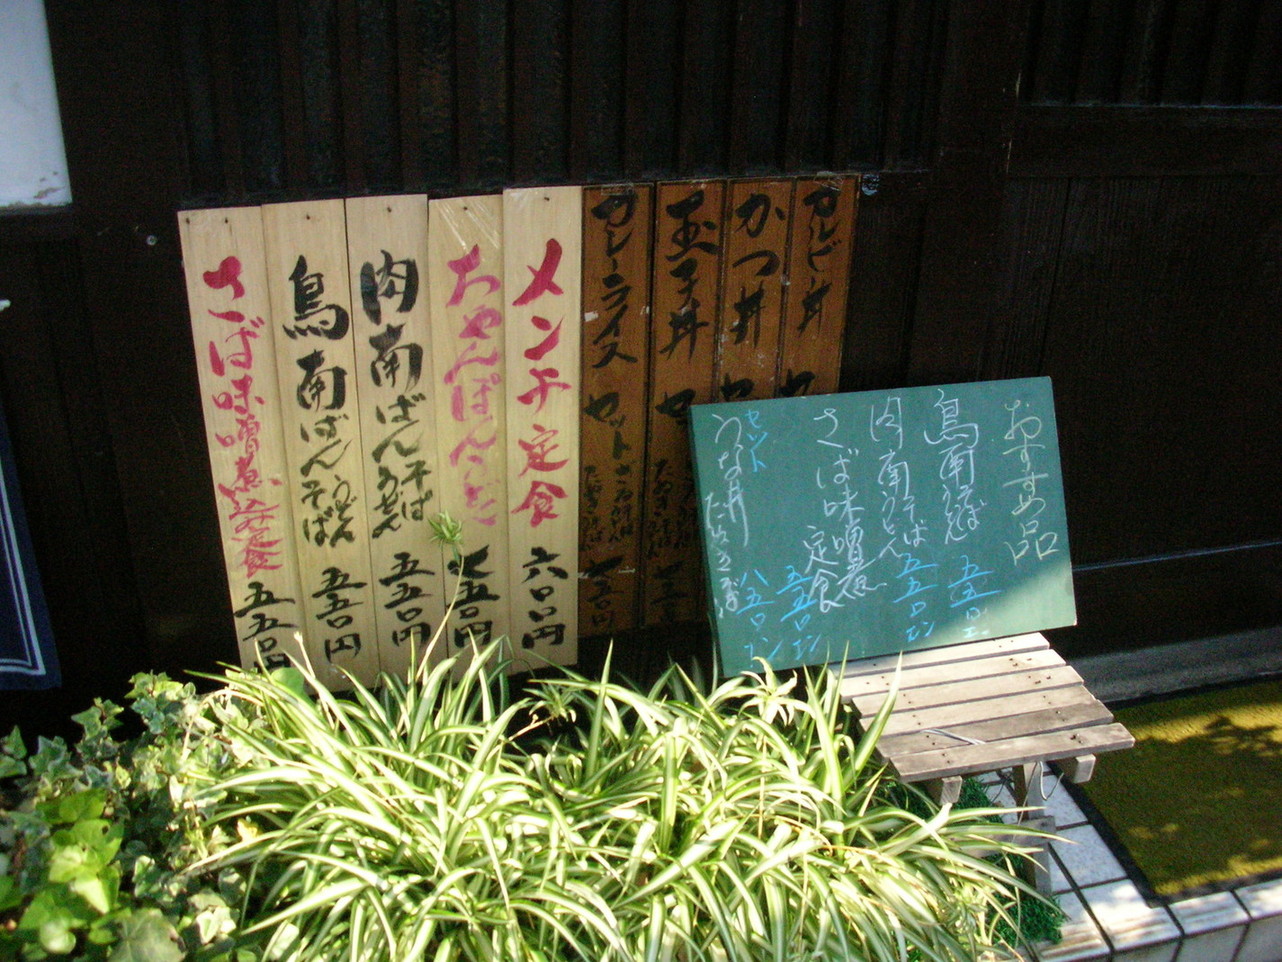 おすすめ品
鳥南うどんそば 五五〇円
肉南うどんそば 五五〇エン
さば味噌煮定食 五五〇エン
セット
うな丼 八五〇エン
カルビ丼 セ
かつ丼 セッ
玉子丼 セッ
カレーライス セット ざるそば たぬきそば 七五〇円
メンチ定食 六〇〇円
ちゃんぽんうどん 七五〇円
肉南ばん そば うどん 五五〇円
鳥南ばん うどん そば 五五〇円
さば味噌煮込み定食 五五〇円